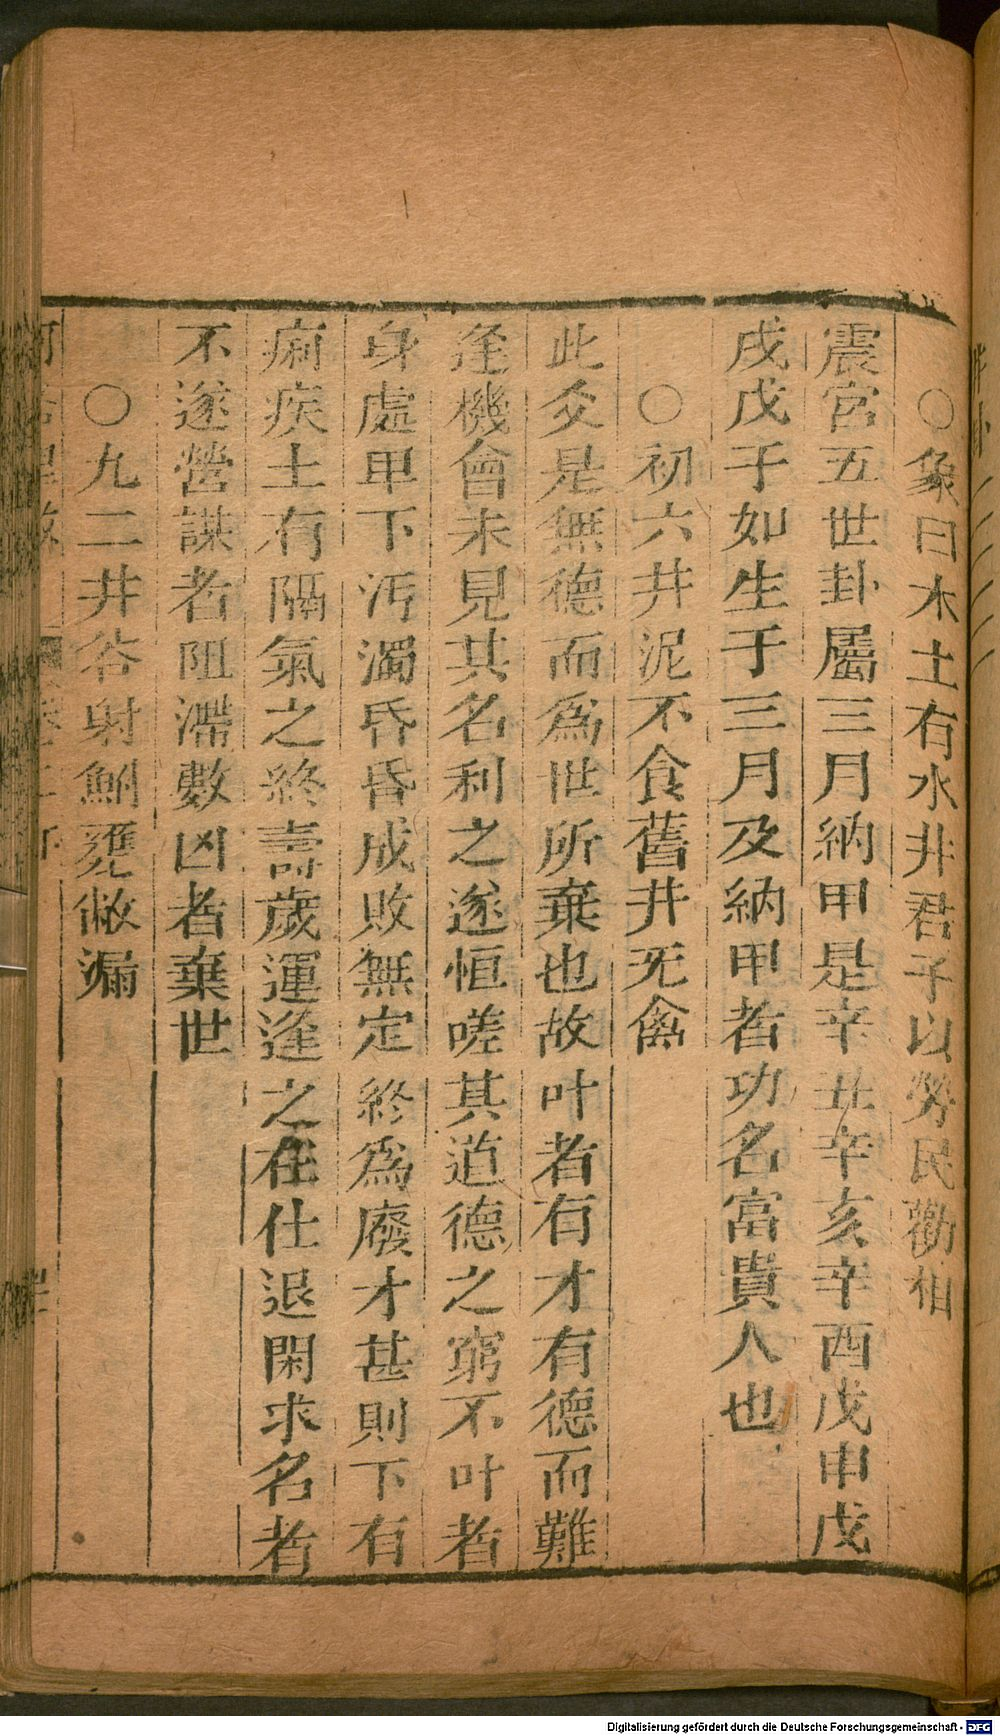 ○象曰木上有水井君子以勞民勸相
震宮五世卦屬三月納甲是辛丑辛亥辛酉戊申戊
戌戊子如生于三月及納甲者功名富貴人也
○初六井泥不食舊井无禽
此爻是無德而爲世所棄也故叶者有才有德而難
逢機會未見其名利之遂恒嗟其道德之窮不叶者
身處甲下汚濁昏昏成敗無定終爲廢才甚則下有
痼疾土有隔氣之終壽歲運逢之在仕退閑求名者
不遂營謀者阻滯數凶者棄世
○九二井谷射鮒甕敝漏
Digitalisierung gefördert durch die Deutsche Forschungsgemeinschaft - DFG